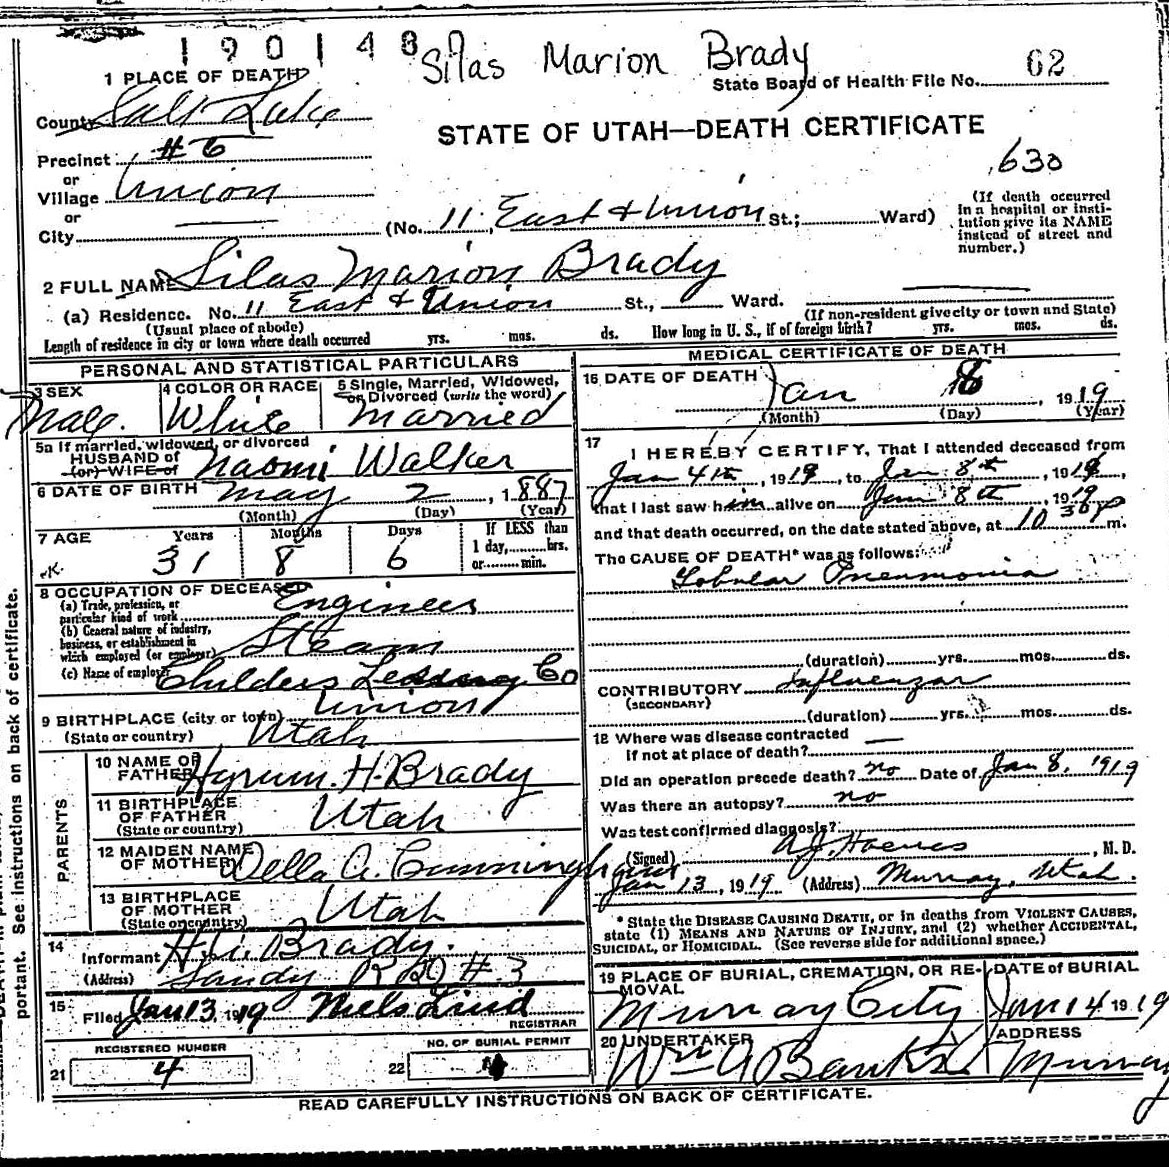 190148
Silas Marion Brady
State Board of Health File No. 62
1 PLACE OF DEATH
County Salt Lake
STATE OF UTAH—DEATH CERTIFICATE
Precinct #6
630
or
Village Union
or
City (No. 11 East & Union St.; Ward)
(If death occurred
in a hospital or insti-
tution give its NAME
instead of street and
number.)
2 FULL NAME Silas Marion Brady
(a) Residence. No. 11 East & Union St., Ward.
(Usual place of abode)
(If non-resident give city or town and State)
Length of residence in city or town where death occurred yrs. mos. ds. How long in U. S., if of foreign birth? yrs. mos. ds.
PERSONAL AND STATISTICAL PARTICULARS
3 SEX
Male
4 COLOR OR RACE
White
5 Single, Married, Widowed,
or Divorced (write the word)
Married
5a If married, widowed, or divorced
HUSBAND of
(or) WIFE of Naomi Walker
6 DATE OF BIRTH May 2, 1887
(Month) (Day) (Year)
7 AGE Years Months Days If LESS than
31 8 6
1 day, hrs.
or min.
8 OCCUPATION OF DECEASED
(a) Trade, profession, or
particular kind of work Engineer
(b) General nature of industry,
business, or establishment in
which employed (or employer) Steam
(c) Name of employer Childers Co
9 BIRTHPLACE (city or town) Union
(State or country) Utah
PARENTS
10 NAME OF
FATHER Hyrum H. Brady
11 BIRTHPLACE
OF FATHER
(State or country) Utah
12 MAIDEN NAME
OF MOTHER Della A. Cunningham
13 BIRTHPLACE
OF MOTHER
(State or country) Utah
14
Informant Brady.
(Address) Sandy #3
15
Filed Jan 13, 1919 Niels Lind
REGISTRAR
REGISTERED NUMBER
21 4
NO. OF BURIAL PERMIT
22
MEDICAL CERTIFICATE OF DEATH
16 DATE OF DEATH Jan 8 1919
(Month) (Day) (Year)
17
I HEREBY CERTIFY, That I attended deceased from
Jan 4th, 1919, to Jan 8th, 1919,
that I last saw him alive on Jan 8th, 1919
and that death occurred, on the date stated above, at 10 30 P m.
The CAUSE OF DEATH* was as follows:
Lobular Pneumonia
(duration) yrs. mos. ds.
CONTRIBUTORY Influenza
(SECONDARY)
(duration) yrs. mos. ds.
18 Where was disease contracted
if not at place of death?
Did an operation precede death? no Date of Jan 8, 1919
Was there an autopsy? no
Was test confirmed diagnosis?
(Signed) , M. D.
Jan 13, 1919 (Address) Murray, Utah.
* State the DISEASE CAUSING DEATH, or in deaths from VIOLENT CAUSES,
state (1) MEANS AND NATURE OF INJURY, and (2) whether ACCIDENTAL,
SUICIDAL, or HOMICIDAL. (See reverse side for additional space.)
19 PLACE OF BURIAL, CREMATION, OR RE-
MOVAL
Murray City
DATE of BURIAL
Jan 14 1919
20 UNDERTAKER
Wm A Banks
ADDRESS
Murray
READ CAREFULLY INSTRUCTIONS ON BACK OF CERTIFICATE.
portant. See instructions on back of certificate.